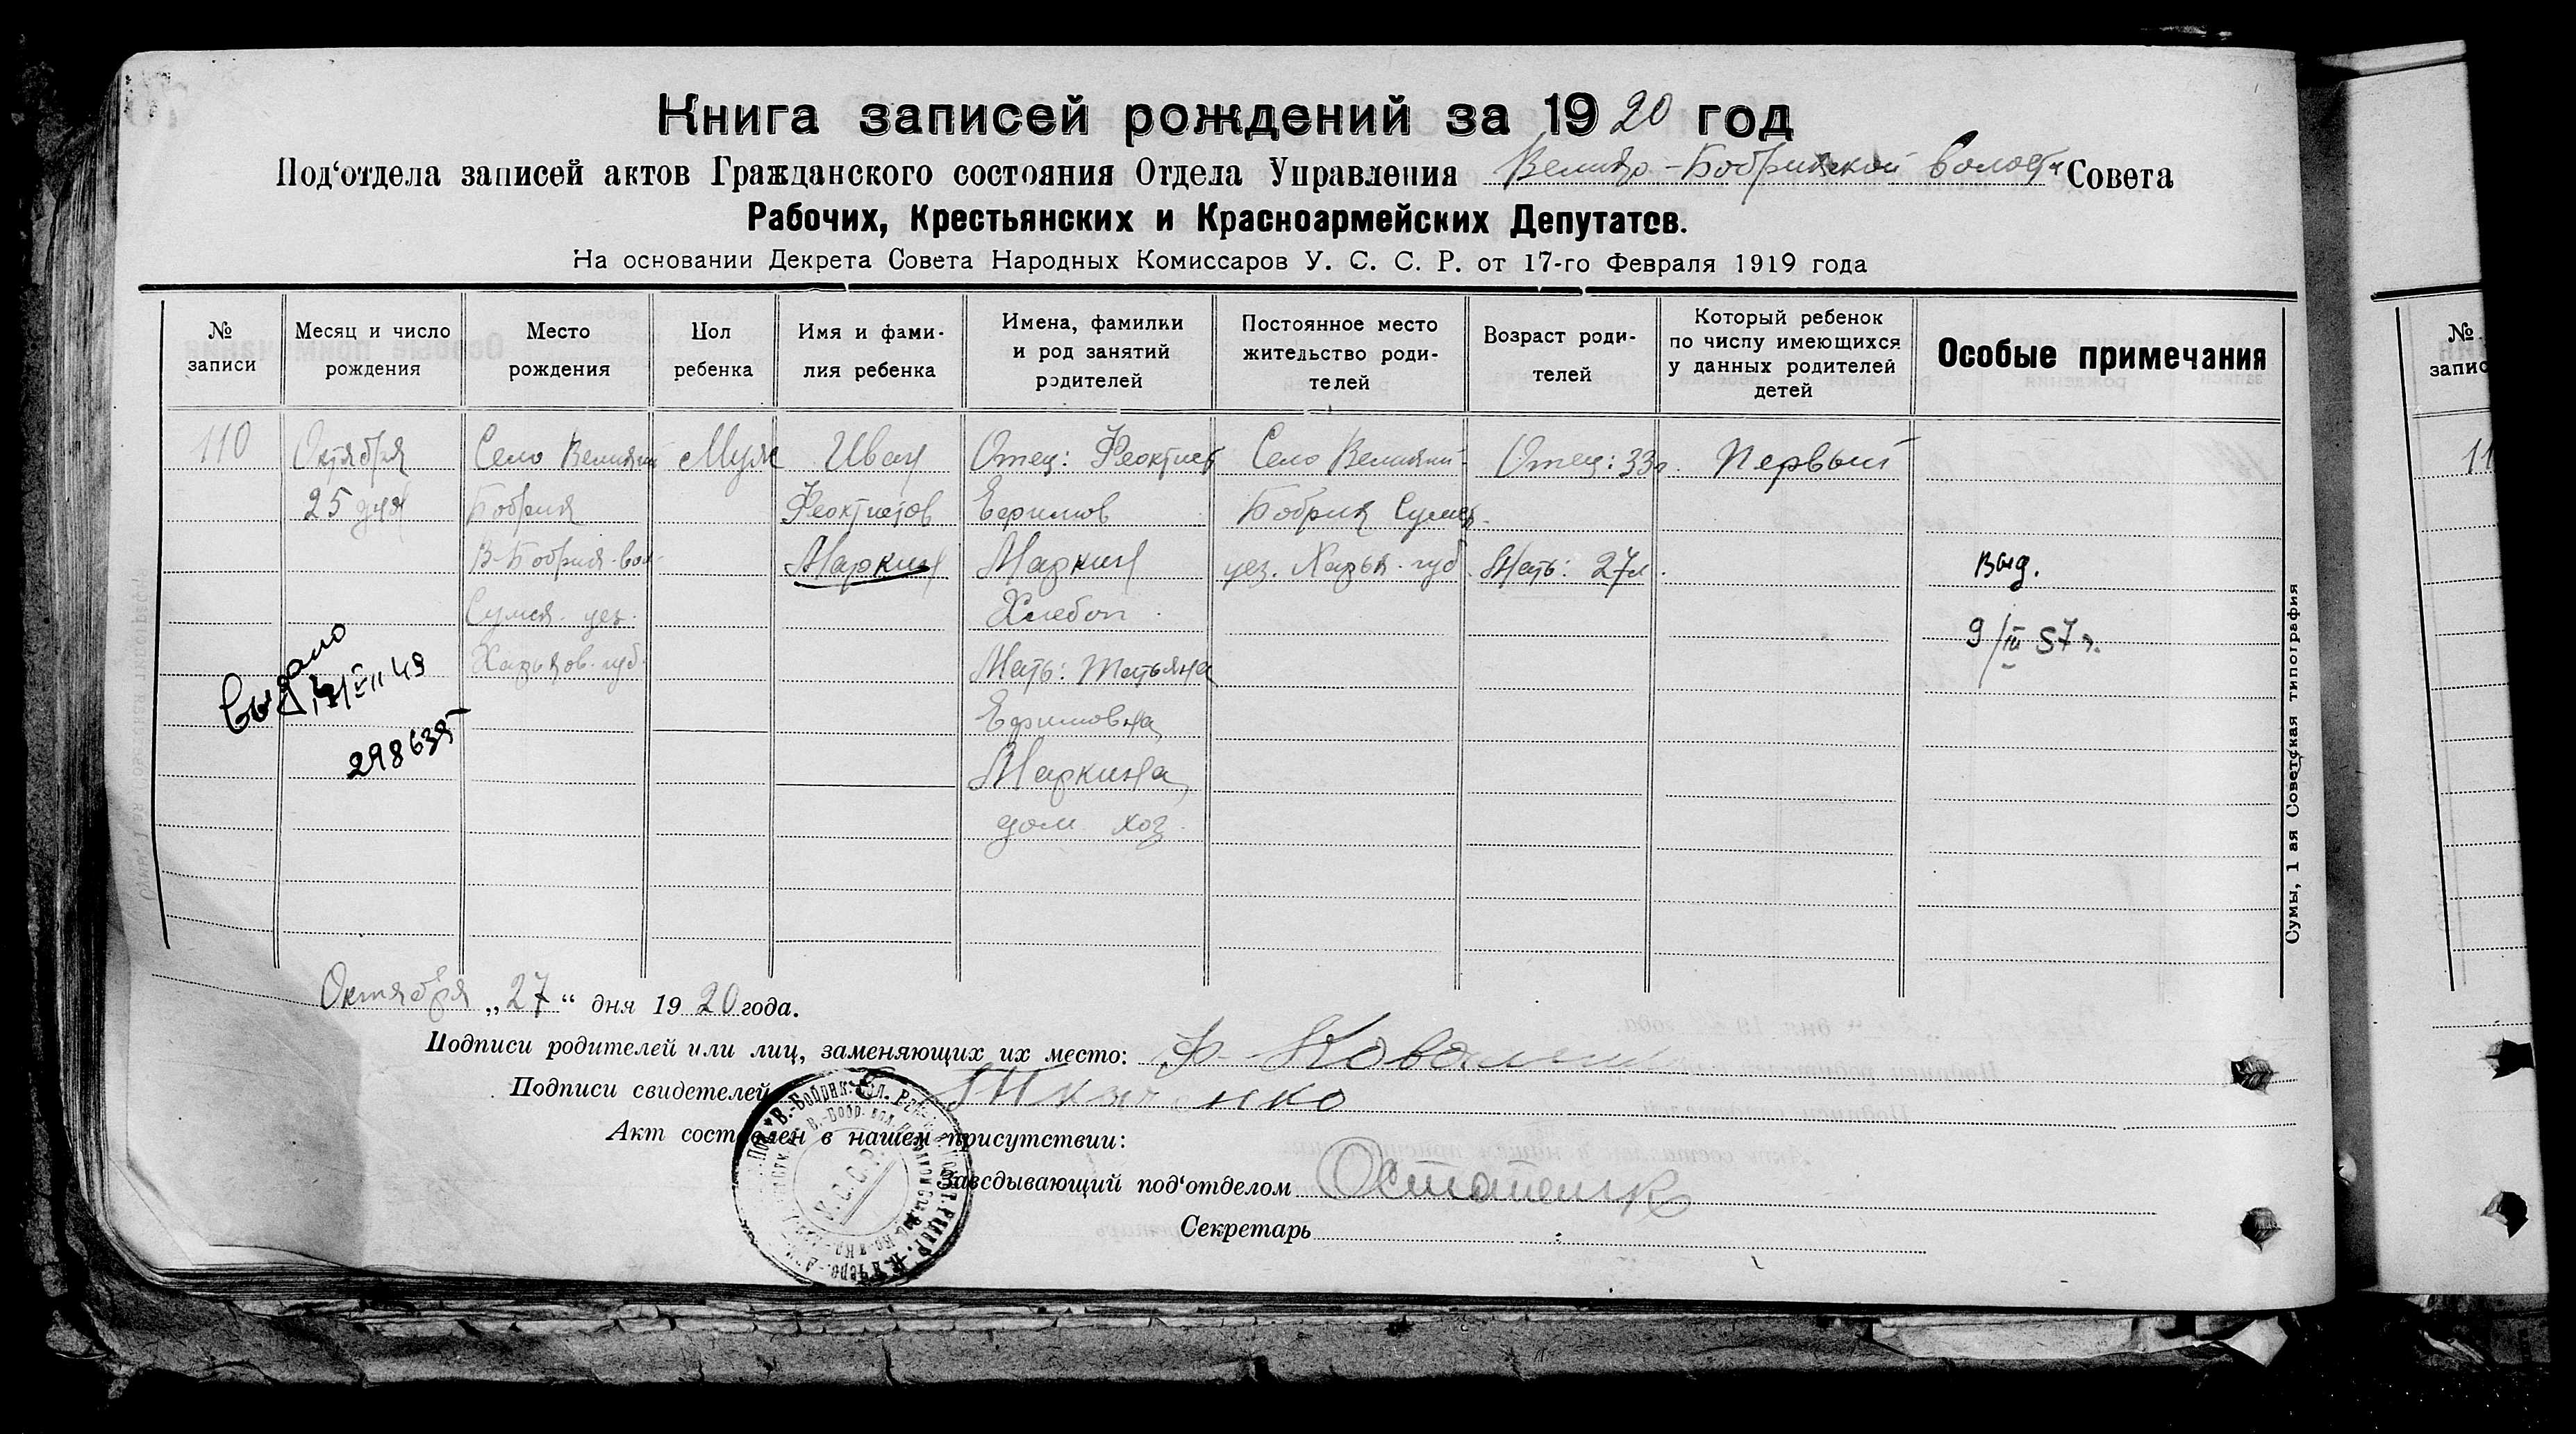 Книга записей рождений за 1920 год
Под‘отдела записей актов Гражданского состояния Отдела Управления Велико-Бобрикской волости Совета
Рабочих, Крестьянских и Красноармейских Депутатов.
На основании Декрета Совета Народных Комиссаров У. С. С. Р. от 17-го Февраля 1919 года
№ записи
Месяц и число рождения
Место рождения
Пол ребенка
Имя и фами-
лия ребенка
Имена, фамилии
и род занятий
родителей
Постоянное место
жительство роди-
телей
Возраст роди-
телей
Который ребенок
по числу имеющихся
у данных родителей
детей
Особые примечания
110
Октября
25 дня
Село Великий
Бобрик
В-Бобрик. вол.
Сумск. уез.
Харьков. губ.
Муж
Иван
Феоктистов
Маркин
Отец: Феоктист
Ефимов
Маркин
Хлебоп.
Мать: Татьяна
Ефимовна
Маркина
дом. хоз.
Село Великий
Бобрик Сумск.
уез. Харьк. губ.
Отец: 33л.
Мать: 27л.
Первый
выд.
9/III 57г.
Выдано
298635
Октября „27“ дня 1920 года.
Подписи родителей или лиц, заменяющих их место: Ф.
Подписи свидетелей
Акт составлен в нашем присутствии:
Заведывающий под‘отделом
Секретарь
У.С.С.Р.
Сумы, 1 ая Советская типография
№
запис
11